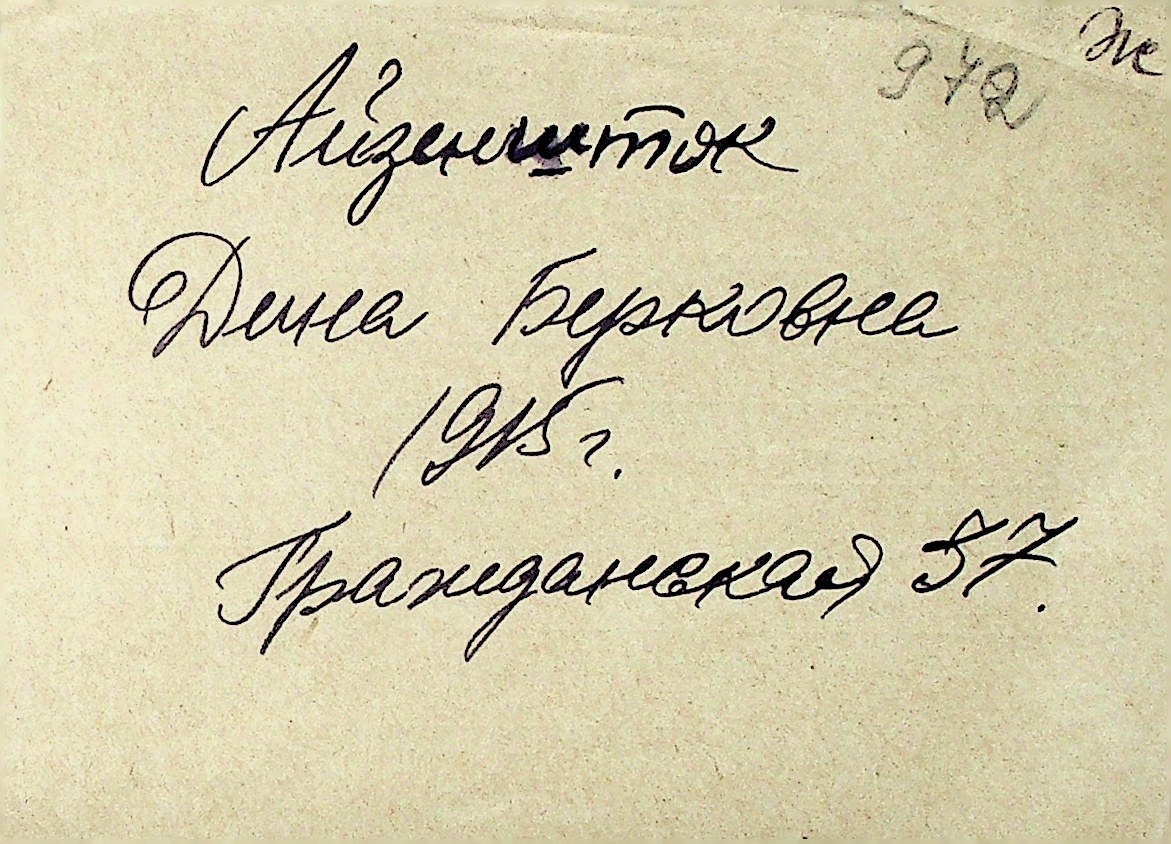 Ж
972
Айзеншток
Дина Берковна
1915 г.
Гражданская 37.